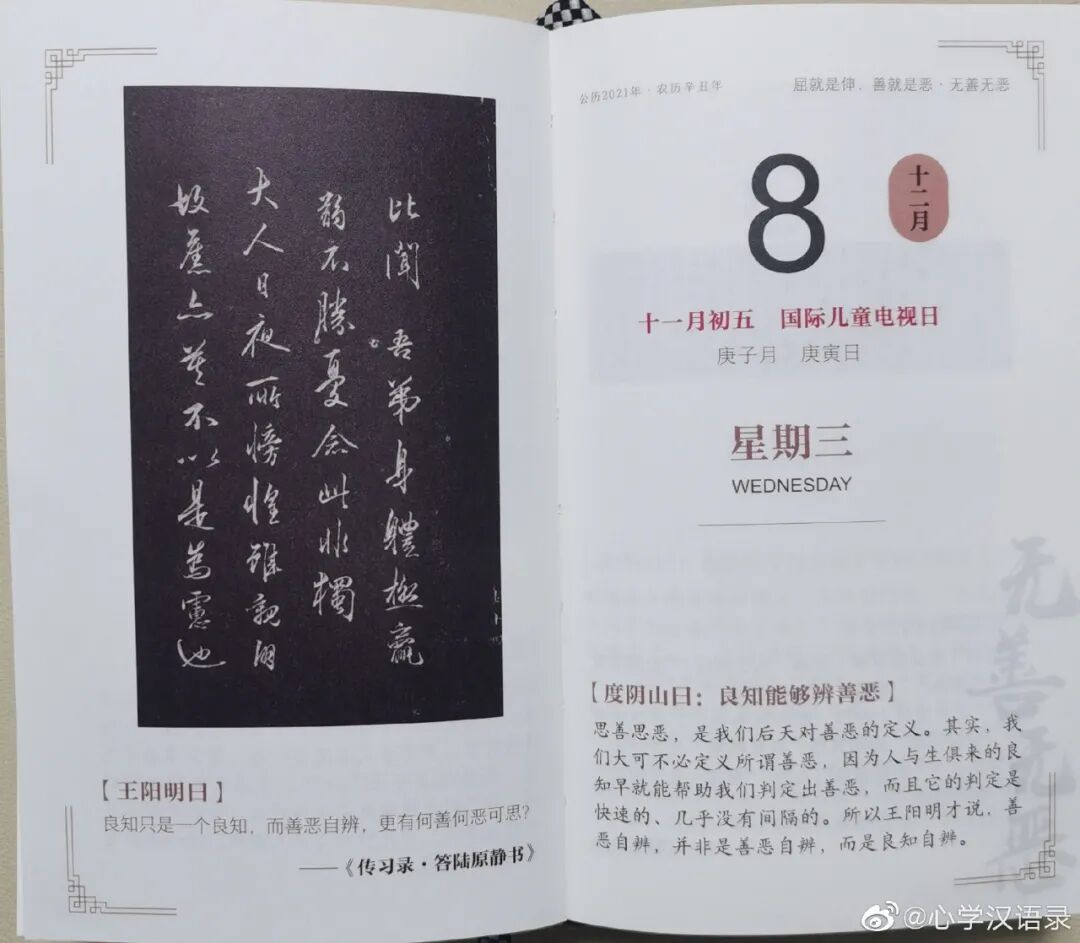 比聞 吾弟身體極羸
弱不勝憂念此非獨
大人日夜所徬惶雖親朋
故舊亦莫不以是為慮也
【王阳明曰】
良知只是一个良知，而善恶自辨，更有何善何恶可思？
——《传习录·答陆原静书》
公历2021年·农历辛丑年
屈就是伸，善就是恶·无善无恶
8
十二月
十一月初五 国际儿童电视日
庚子月 庚寅日
星期三
WEDNESDAY
【度阴山曰：良知能够辨善恶】
思善思恶，是我们后天对善恶的定义。其实，我
们大可不必定义所谓善恶，因为人与生俱来的良
知早就能帮助我们判定出善恶，而且它的判定是
快速的、几乎没有间隔的。所以王阳明才说，善
恶自辨，并非是善恶自辨，而是良知自辨。
无善无恶
@心学汉语录